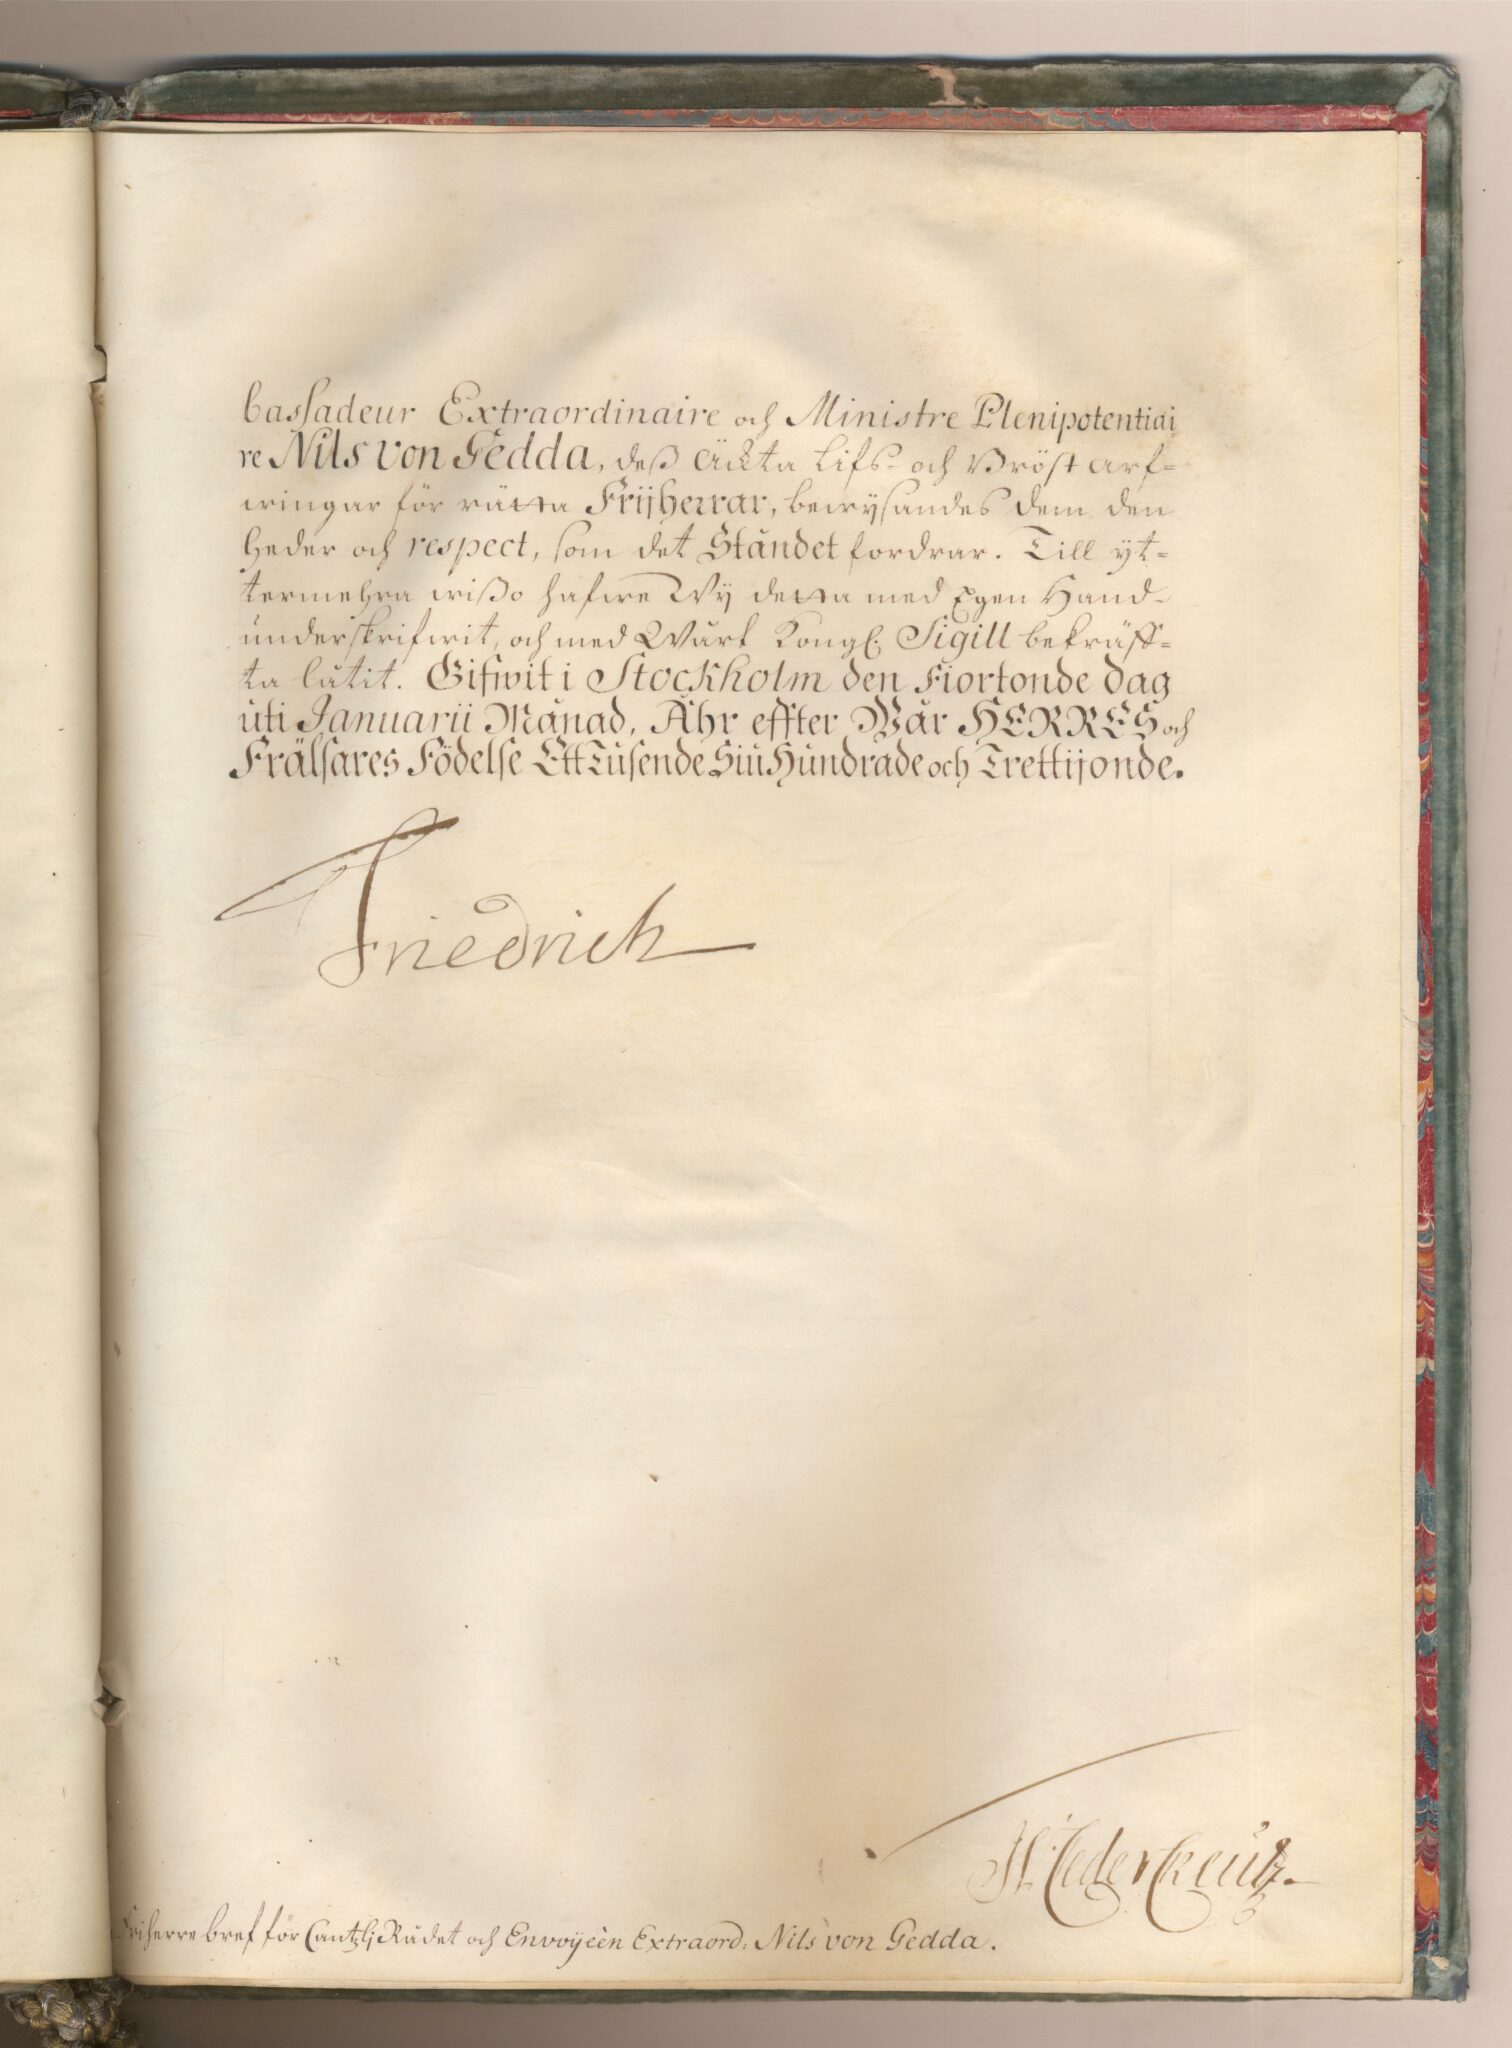 bassadeur Extraordinaire och Ministre Plenipotentiai
re Nils von Gedda, deß Äckta Lifs- och Bröst arf-
wingar för rätta Frijherrar, bewijsandes dem den
heder och respect, som det Ståndet fordrar. Till yt-
termehra wißo hafwe Wij detta med Egen Hand
underskrifwit, och med Wårt Kongl. Sigill bekräff-
ta låtit. Gifwit i Stockholm den Fiortonde dag
uti Januarii Månad, Åhr effter Wår HERRES och
Frälsares Födelse Ett Tusende Siu Hundrade och Trettijonde.
Friedrich
H Cedercreutz.
Friherre bref för Cantzlj Rådet och Envoÿeèn Extraord: Nils von Gedda.